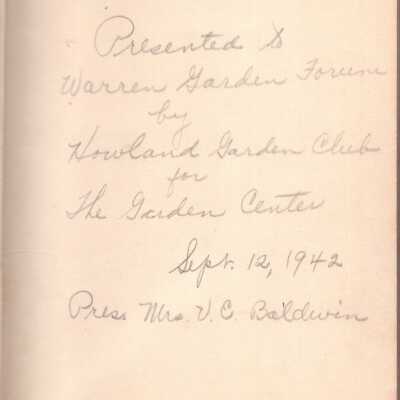 Presented to
Warren Garden Forum
by
Howland Garden Club
for
The Garden Center
Sept. 12, 1942
Pres. Mrs. V. C. Baldwin